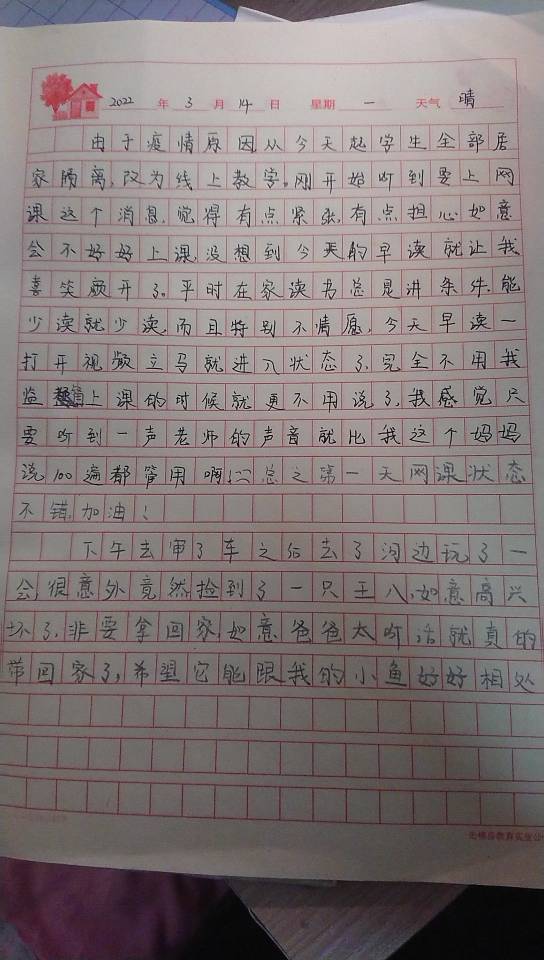 2022 年 3 月 14 日 星期 一 天气 晴
由于疫情原因从今天起学生全部居
家隔离,改为线上教学。刚开始听到要上网
课这个消息,觉得有点紧张,有点担心如意
会不好好上课,没想到今天的早读就让我
喜笑颜开了。平时在家读书总是讲条件,能
少读就少读,而且特别不情愿,今天早读一
打开视频立马就进入状态了,完全不用我
监督上课的时候就更不用说了,我感觉只
要听到一声老师的声音就比我这个妈妈
说100遍都管用啊!总之第一天网课状态
不错,加油!
下午去审了车之后去了河边玩了一
会,很意外竟然捡到了一只王八,如意高兴
坏了,非要拿回家,如意爸爸太听话就真的
带回家了,希望它能跟我的小鱼好好相处